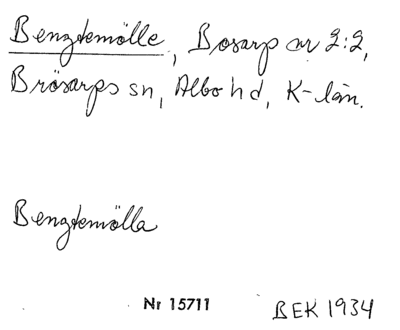 Bengtemölle, Bosarp nr 2:2,
Brösarps sn, Albo hd, K-län.
Bengtemölla
Nr 15711
BEK 1934